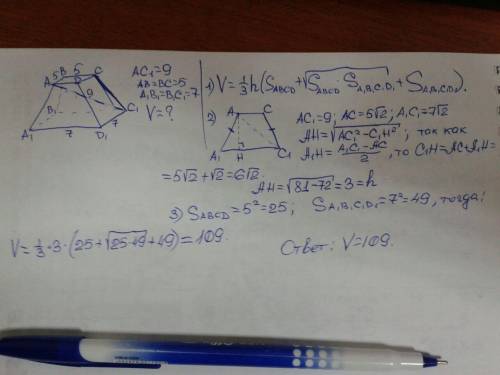 5
B 5 C
A D
9
B₁ C₁
A₁ 7 D₁ 7
AC₁=9
AB=BC=5
A₁B₁=B₁C₁=7
V=?
1) V=⅓h(S_ABCD+√(S_ABCD·S_A₁B₁C₁D₁)+S_A₁B₁C₁D₁).
2) A C
A₁ H C₁
AC₁=9; AC=5√2; A₁C₁=7√2
AH=√(AC₁²-C₁H²); так как
A₁H=(A₁C₁-AC)/2, то C₁H=AC+A₁H=
=5√2+√2=6√2.
AH=√(81-72)=3=h
3) S_ABCD=5²=25; S_A₁B₁C₁D₁=7²=49, тогда:
V=⅓·3·(25+√(25·49)+49)=109.
Ответ: V=109.